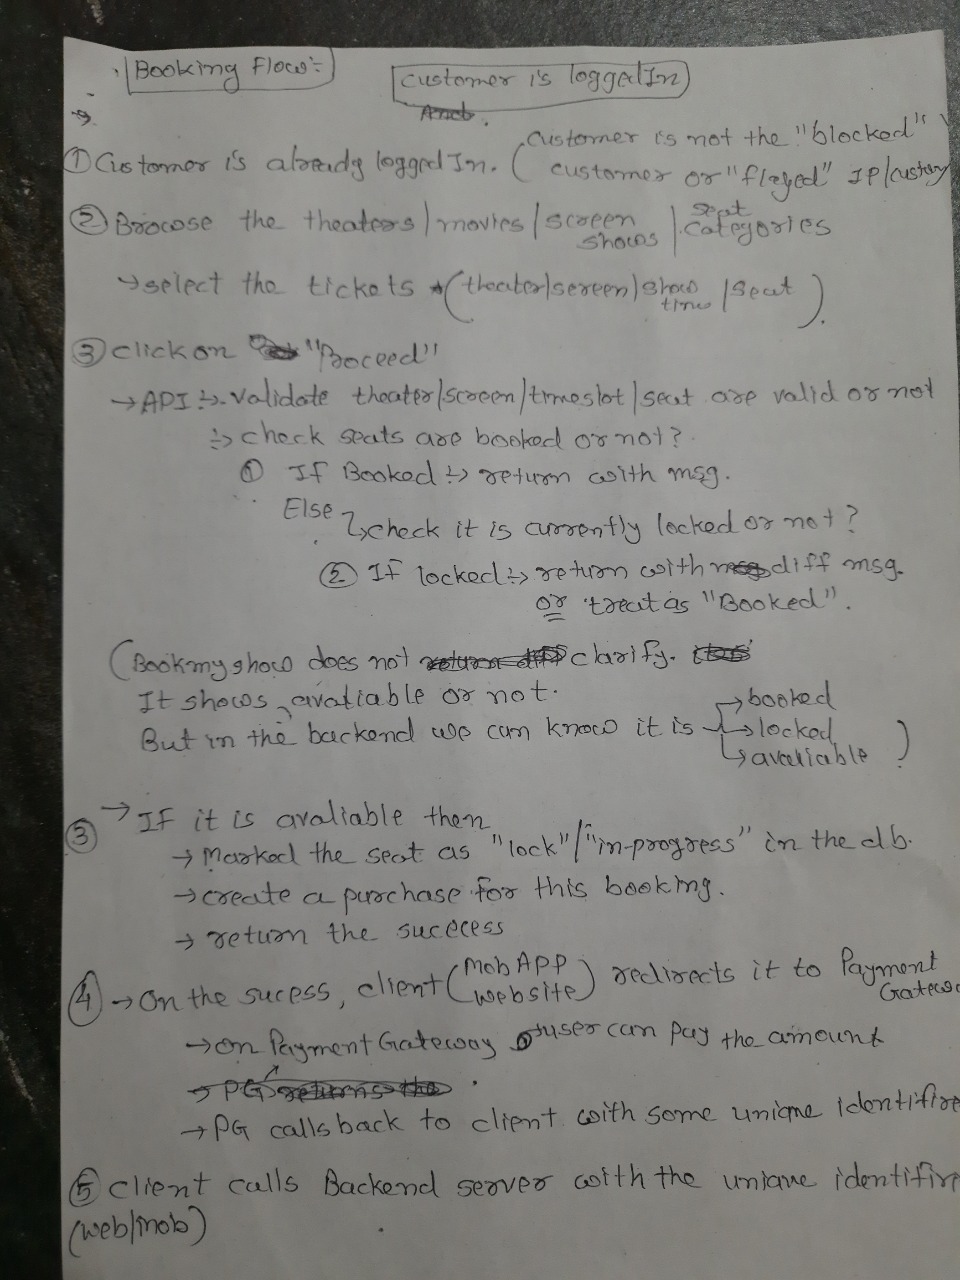 Booking Flow:-
Customer is loggedIn
① Customer is already logged In. ( Customer is not the "blocked"
customer or "flaged" IP/
② Browse the theaters / movies / screen shows / seat categories
→ select the tickets (theater/screen/show time /seat).
③ click on "Proceed"
→ API :→ validate theater/screen/timeslot/seat are valid or not
:→ check seats are booked or not?
① If Booked :→ return with msg.
Else
↳ check it is currently locked or not?
② If locked :→ return with diff msg.
or treat as "Booked".
(Bookmyshow does not clarify.
It shows avaliable or not.
But in the backend we can know it is → booked
→ locked
↳ avaliable )
③ → If it is avaliable then
→ Marked the seat as "lock"/"in-progress" in the db.
→ create a purchase for this booking.
→ return the sucecess
④ → On the sucess, client (Mob APP website) redirects it to Payment
→ on Payment Gateway user can pay the amount
→ PG calls back to client with some unique identifire
⑤ client calls Backend server with the unique identifire
(web/mob)